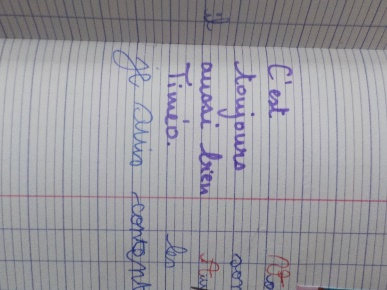 C'est
toujours
aussi bien
Timéo.
je suis content
les
il